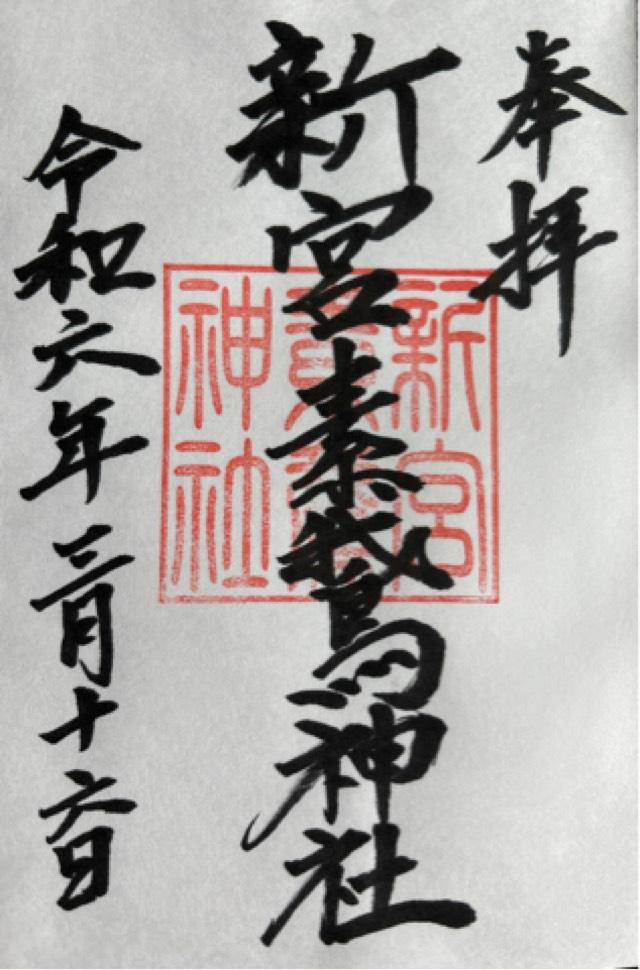 奉拝
新宮素戔嗚神社
令和六年三月十六日
新宮
神社